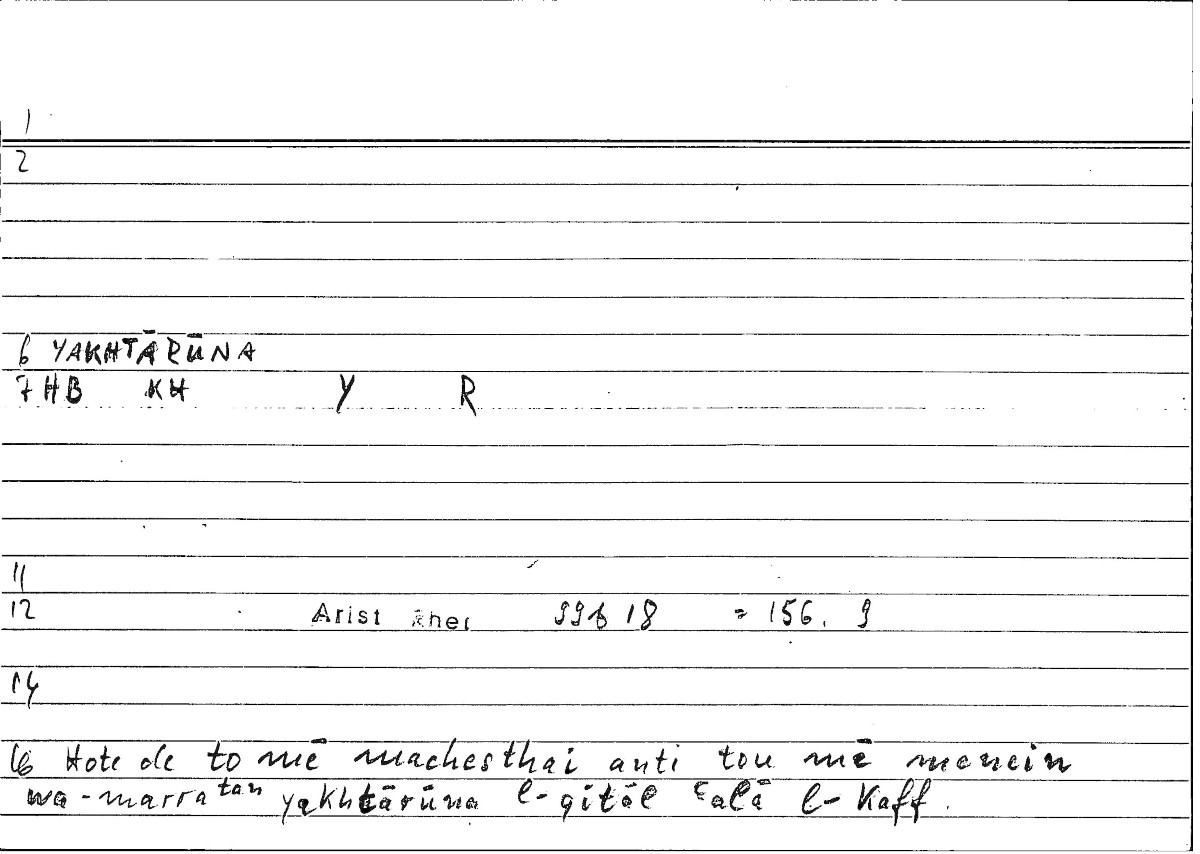 1
2
6 YAKHTĀRŪNA
7 HB KH Y R
11
12 Arist Rhet 99b 18 = 156. 9
14
16 Hote de to mē machesthai anti tou mē menein
wa-marratan yakhtārūna l-qitāl ʿalā l-Kaff.